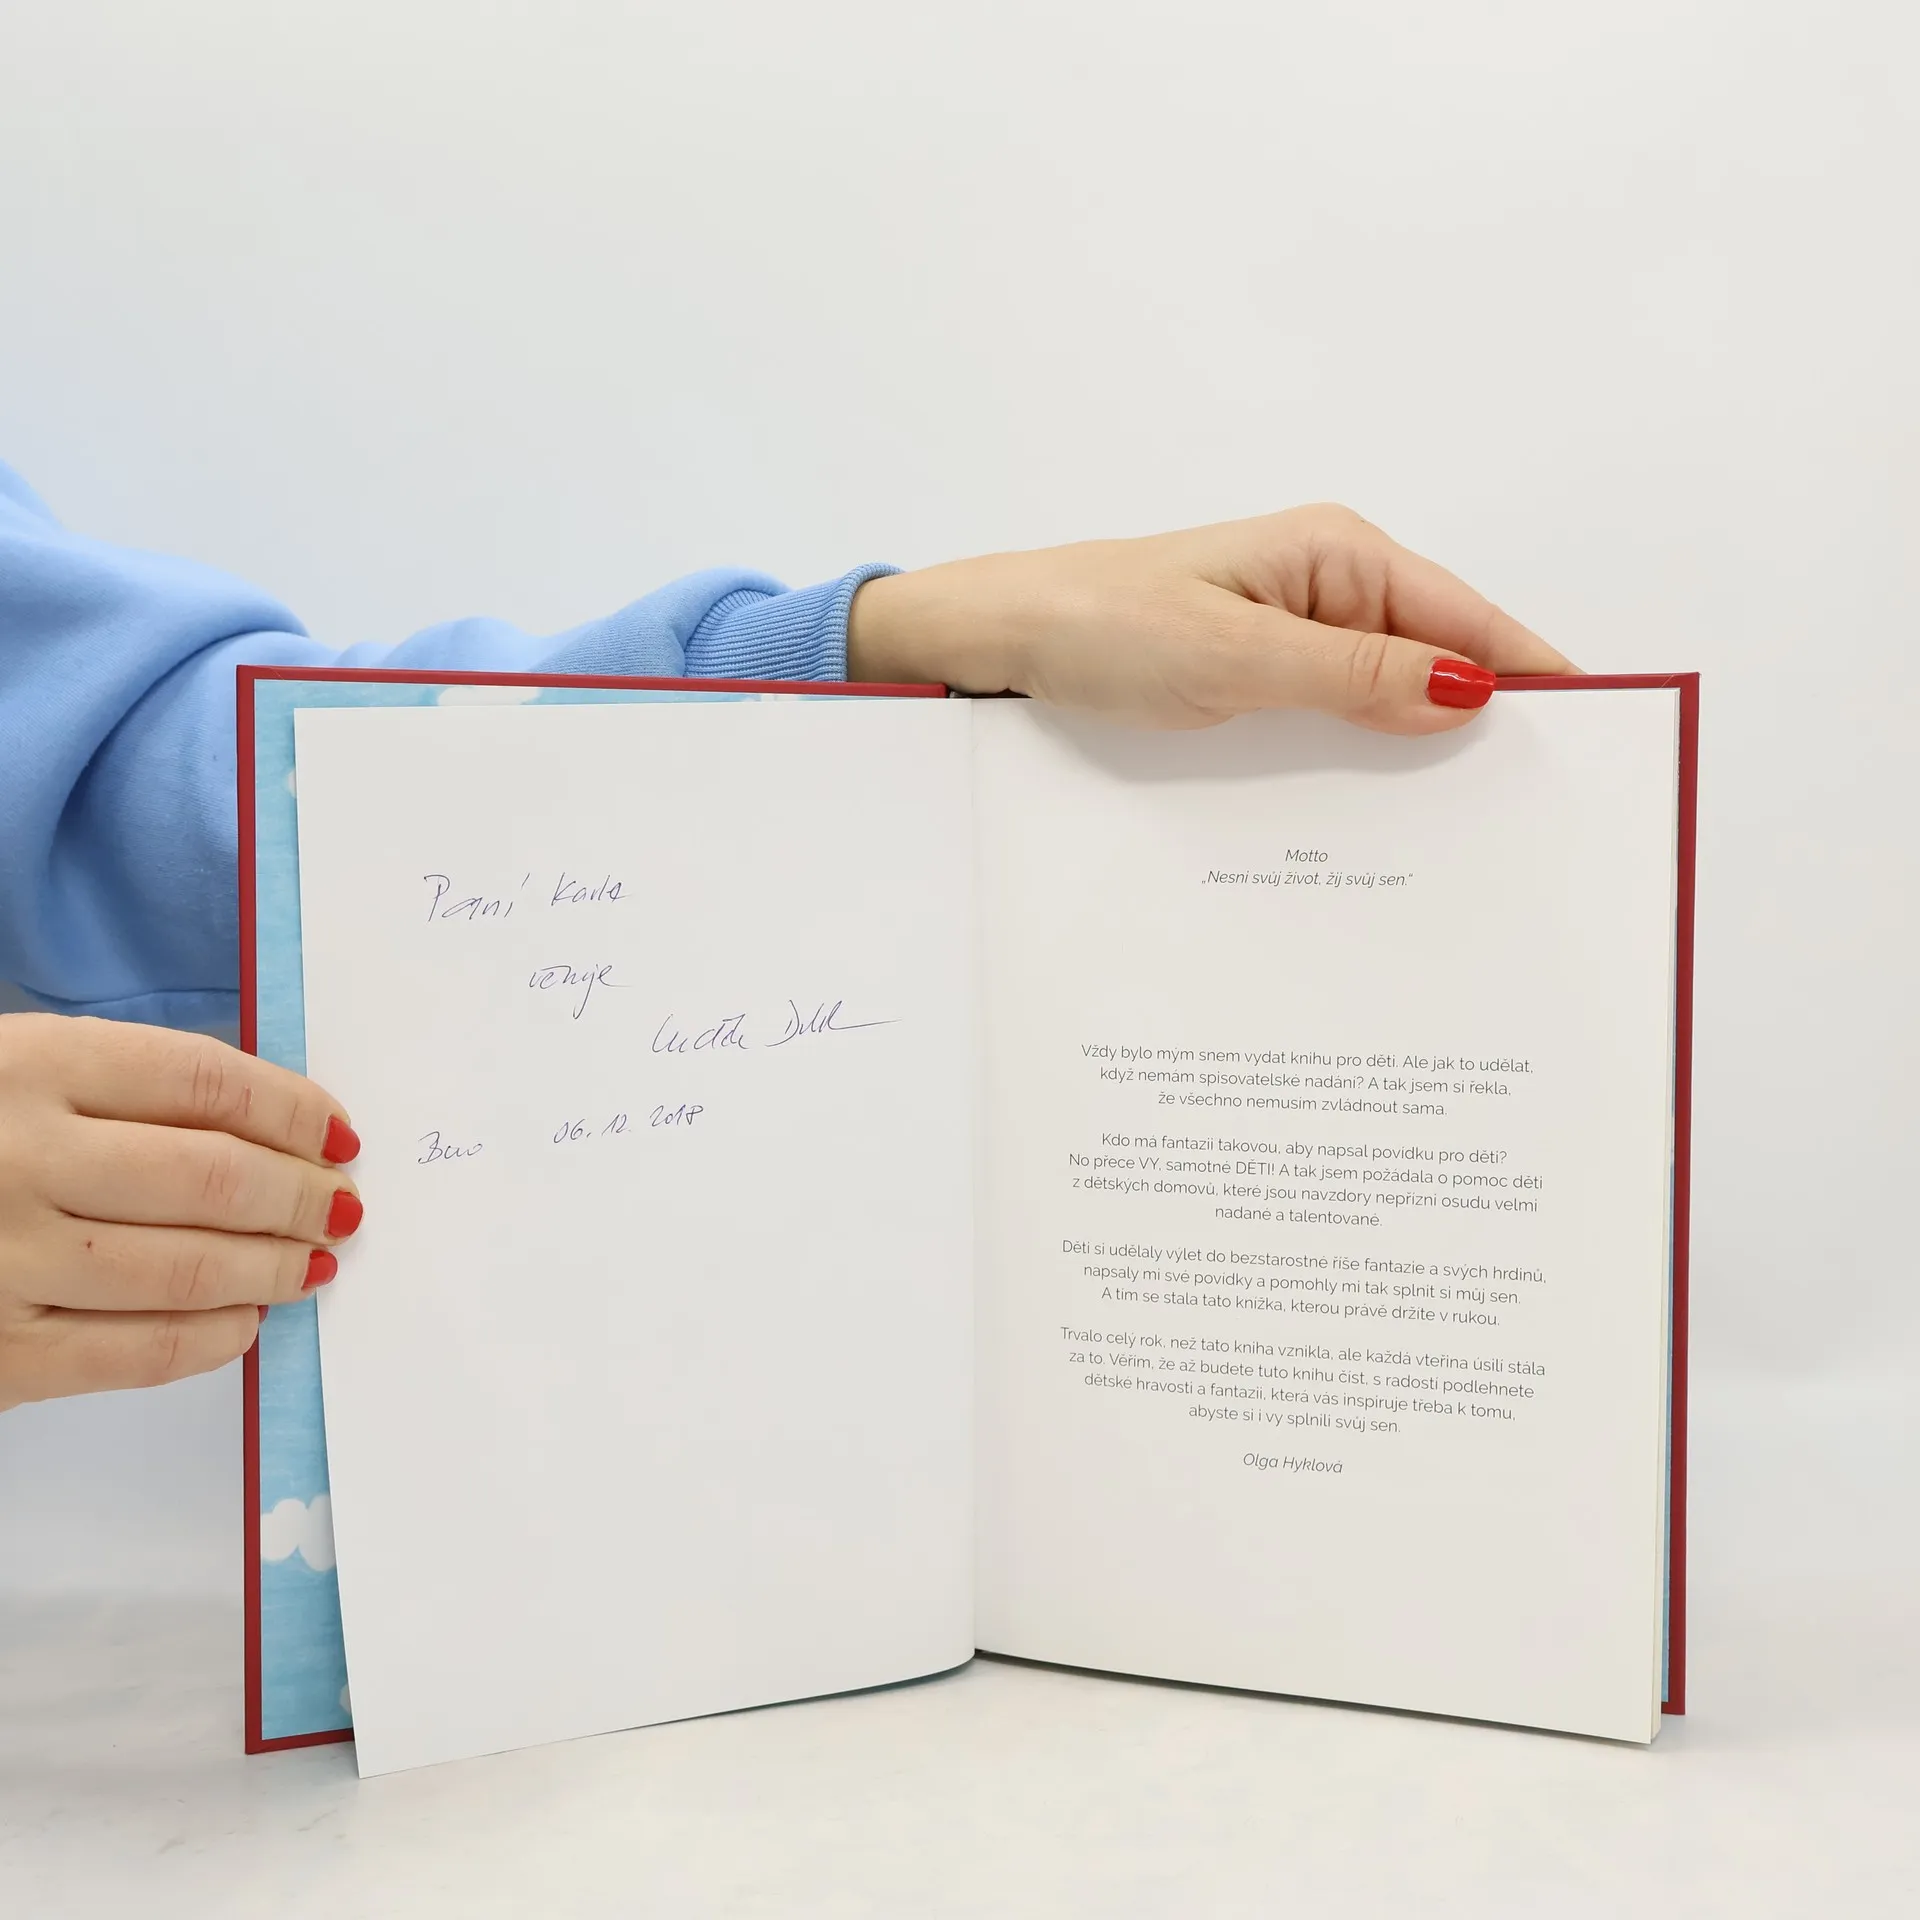 Paní Karle
věnuje
Brno 06. 12. 2018
Motto
„Nesni svůj život, žij svůj sen."
Vždy bylo mým snem vydat knihu pro děti. Ale jak to udělat,
když nemám spisovatelské nadání? A tak jsem si řekla,
že všechno nemusím zvládnout sama.
Kdo má fantazii takovou, aby napsal povídku pro děti?
No přece VY, samotné DĚTI! A tak jsem požádala o pomoc děti
z dětských domovů, které jsou navzdory nepřízni osudu velmi
nadané a talentované.
Děti si udělaly výlet do bezstarostné říše fantazie a svých hrdinů,
napsaly mi své povídky a pomohly mi tak splnit si můj sen.
A tím se stala tato knížka, kterou právě držíte v rukou.
Trvalo celý rok, než tato kniha vznikla, ale každá vteřina úsilí stála
za to. Věřím, že až budete tuto knihu číst, s radostí podlehnete
dětské hravosti a fantazii, která vás inspiruje třeba k tomu,
abyste si i vy splnili svůj sen.
Olga Hyklová